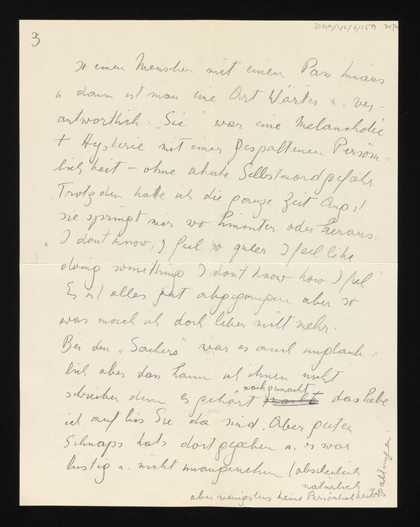 3
so einen Menschen mit einem Pass hinaus
u. dann ist man eine Art Wärter u. ver-
antwortlich. „Sie" war eine Melancholie
+ Hysterie mit einer gespaltenen Persön-
lichkeit - ohne akute Selbstmordgefahr
Trotzdem hatte ich die ganze Zeit Angst
sie springt mir wo hinunter oder heraus.
„I don't know, I feel so queer I feel like
doing something I don't know how I feel"
Es ist alles gut abgegangen aber so
was mach ich doch lieber nicht mehr.
Bei den „Sachers" war es auch unglaub-
lich aber das kann ich Ihnen nicht
schreiben denn es gehört
nachgemacht
das hebe
ich auf bis Sie da sind. Aber guten
Schnaps hats dort gegeben u. es war
lustig u. nicht unangenehm (absichtlich
natürlich
aber wenigstens keine